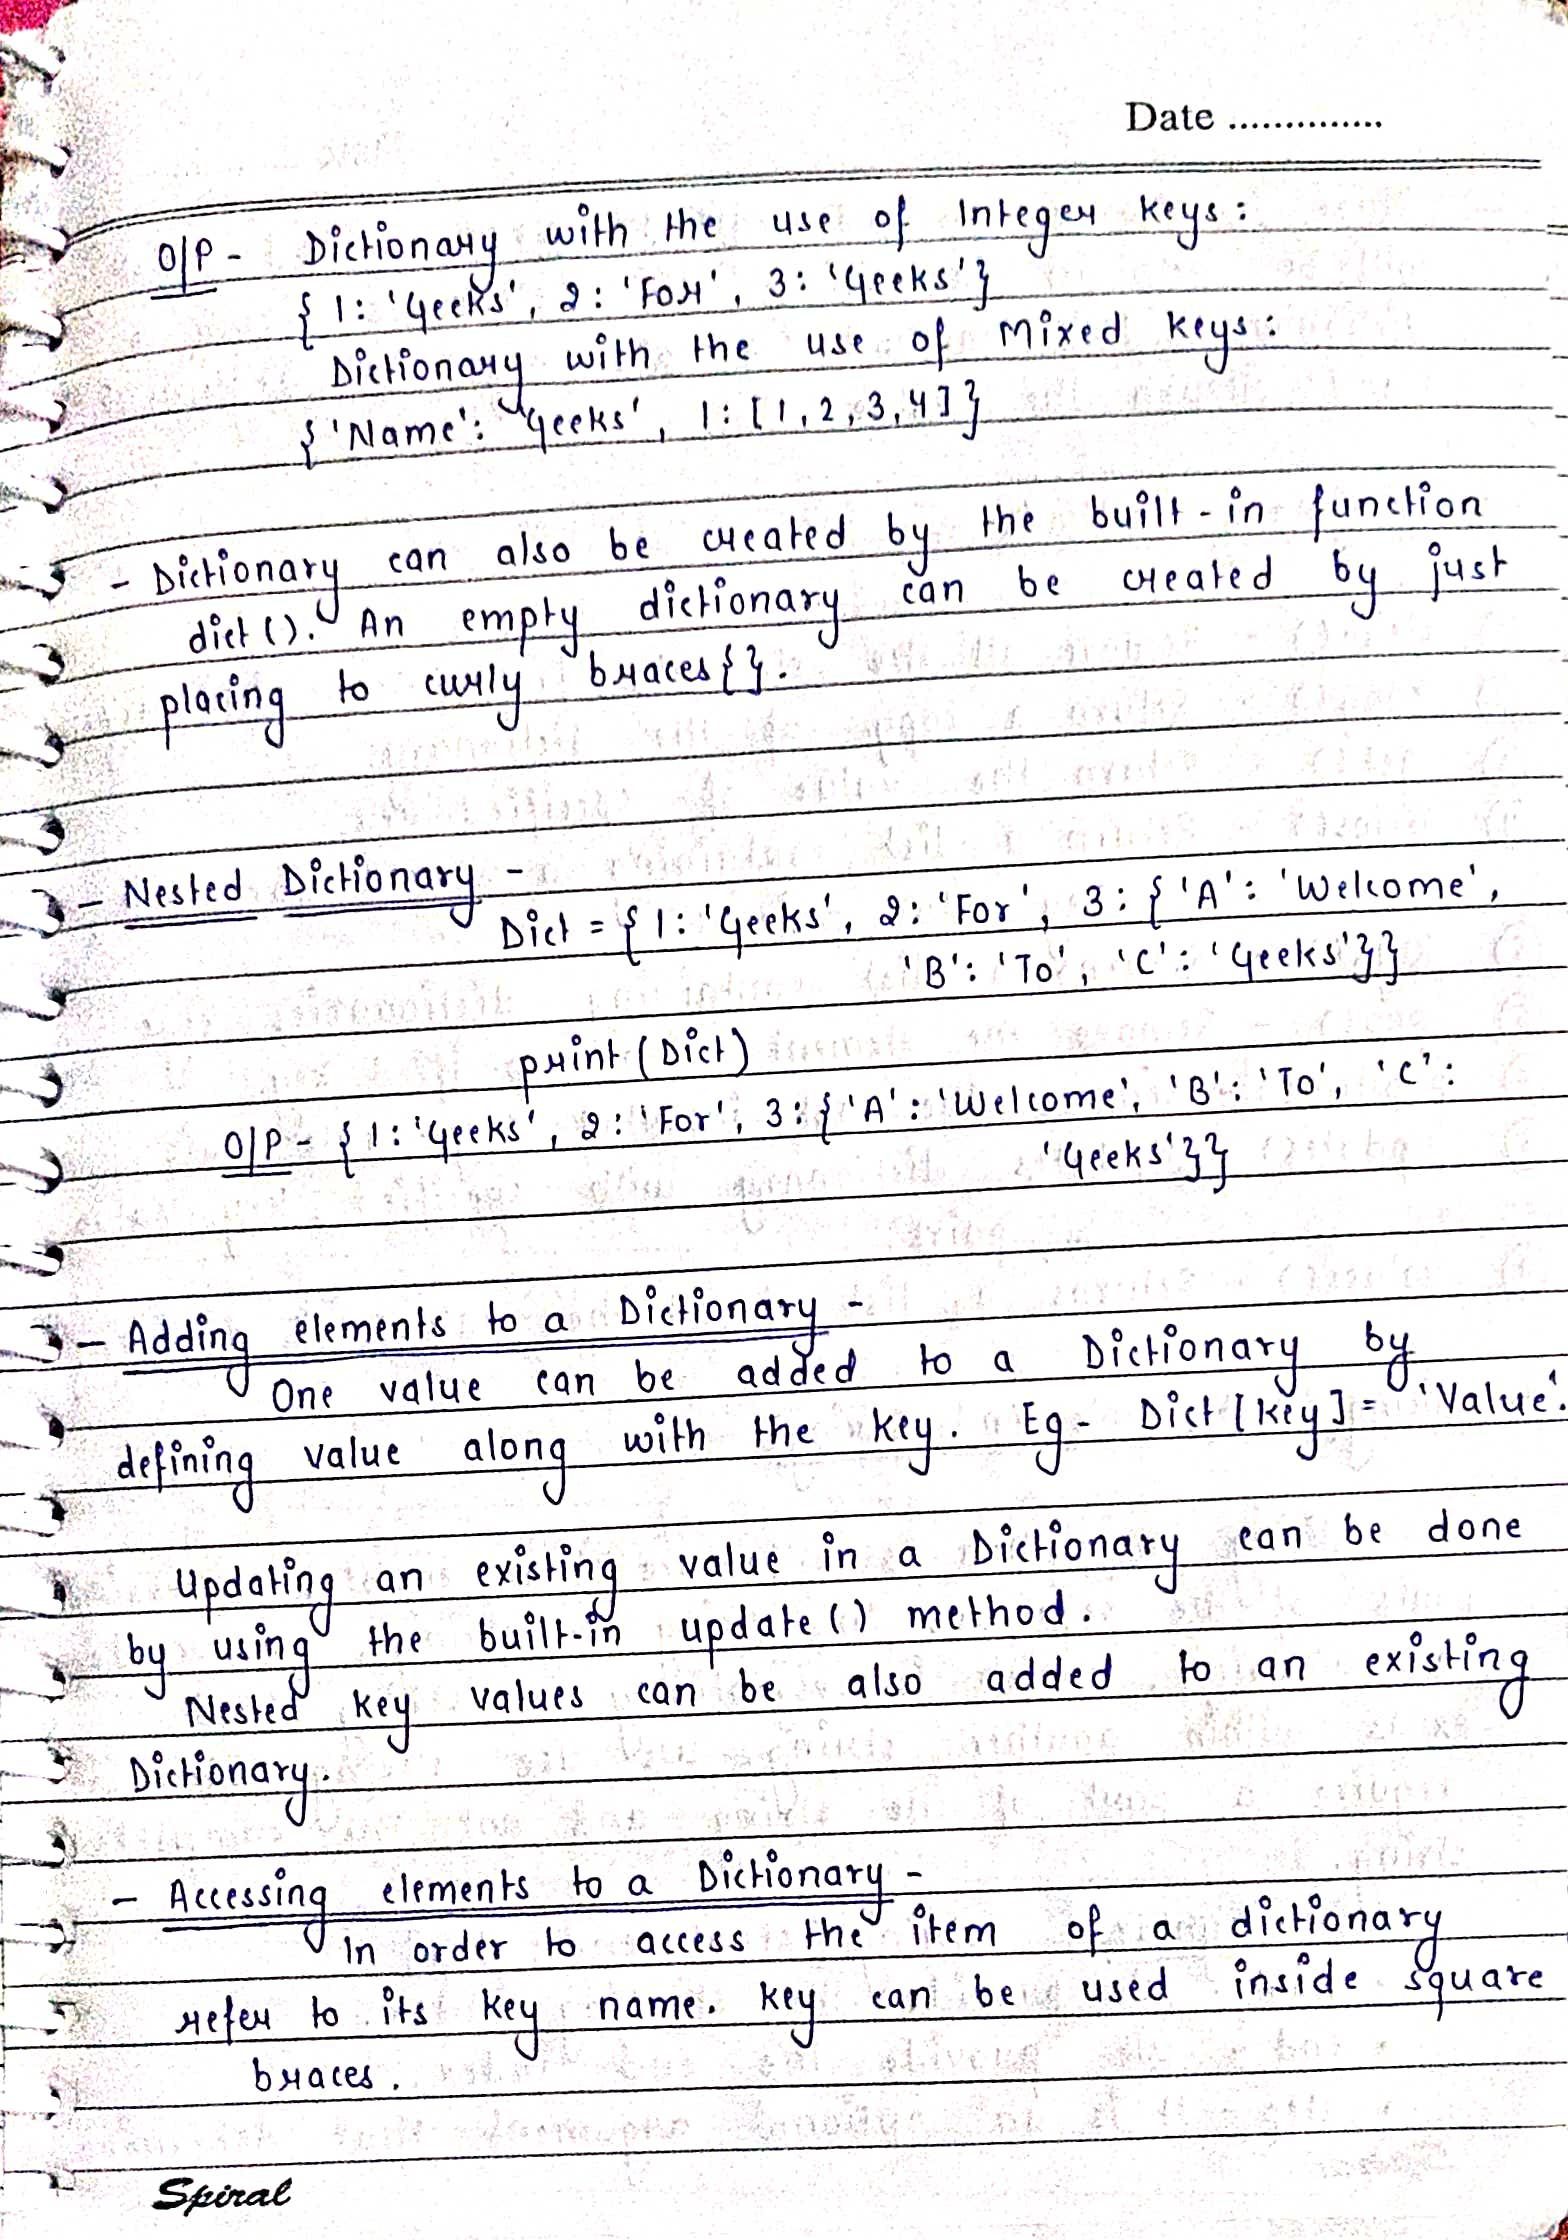 Date ..............
O/P - Dictionary with the use of Integer keys:
{ 1: 'Geeks', 2: 'For', 3: 'Geeks'}
Dictionary with the use of Mixed keys:
{ 'Name': 'Geeks', 1: [1, 2, 3, 4]}
- Dictionary can also be created by the built-in function
dict (). An empty dictionary can be created by just
placing to curly braces {}.
- Nested Dictionary -
Dict = { 1: 'Geeks', 2: 'For', 3: { 'A': 'Welcome',
'B': 'To', 'C': 'Geeks'}}
print (Dict)
O/P - { 1: 'Geeks', 2: 'For', 3: { 'A': 'Welcome', 'B': 'To', 'C':
'Geeks'}}
- Adding elements to a Dictionary -
One value can be added to a Dictionary by
defining value along with the key. Eg - Dict [key] = 'Value'.
Updating an existing value in a Dictionary can be done
by using the built-in update () method.
Nested key values can be also added to an existing
Dictionary.
- Accessing elements to a Dictionary -
In order to access the item of a dictionary
refer to its key name. key can be used inside square
braces.
Spiral